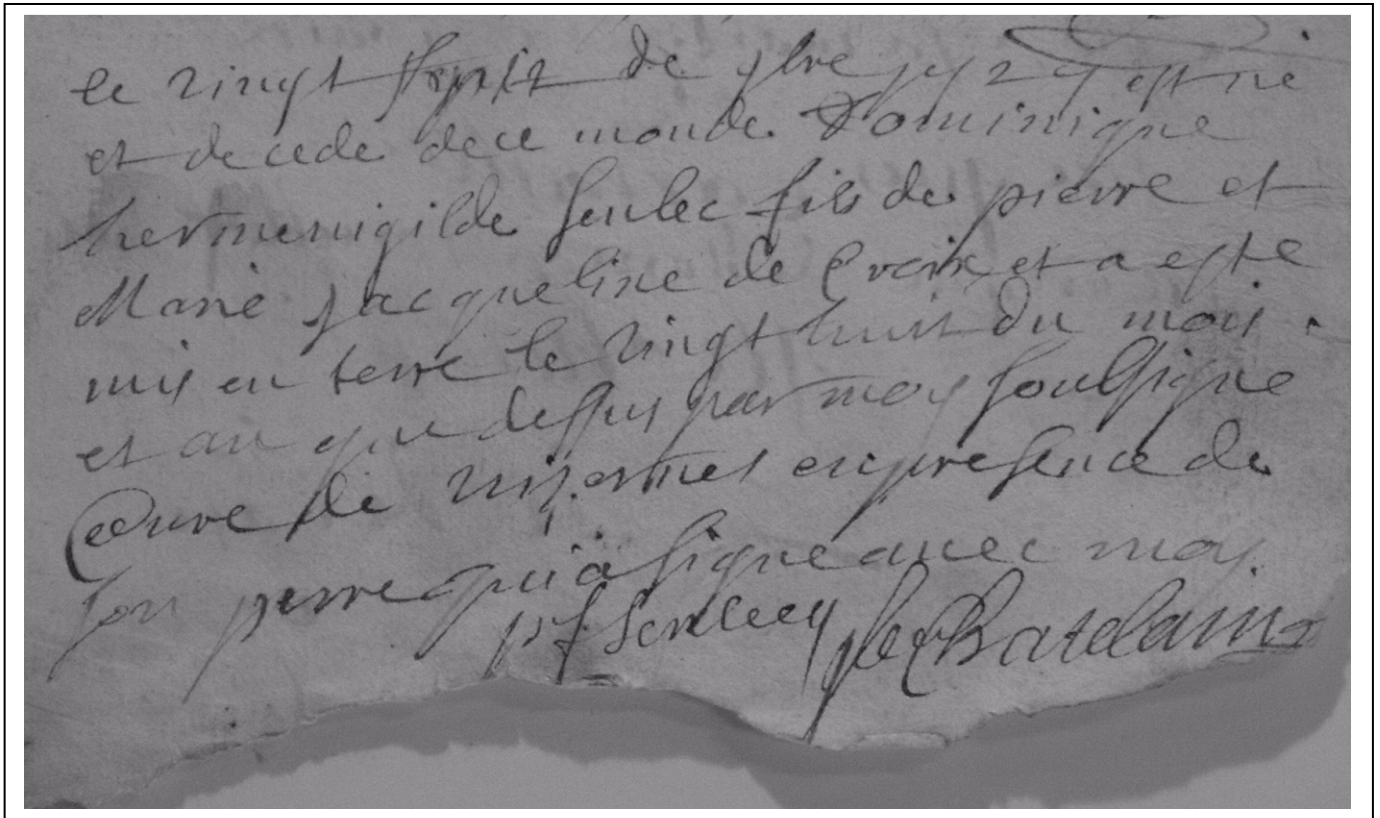 le vingt sept de est ne
et decede de ce monde Dominique
hermenigilde senlec fils de pierre et
Marie Jacqueline de Croix et a este
mis en terre le vingt huit du mois
et an que dessus par moy soussigne
Cure de en presence de
son perre qui a signe avec moy
le Chatelain